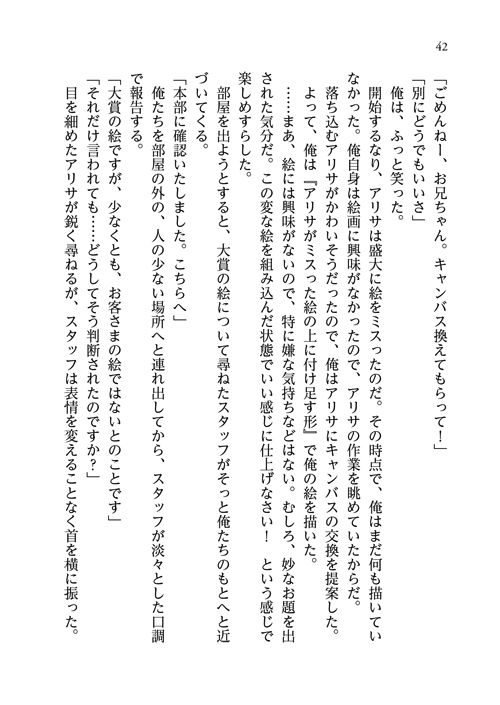 42
「ごめんねー、お兄ちゃん。キャンバス換えてもらって！」
「別にどうでもいいさ」
俺は、ふっと笑った。
開始するなり、アリサは盛大に絵をミスったのだ。その時点で、俺はまだ何も描いてい
なかった。俺自身は絵画に興味がなかったので、アリサの作業を眺めていたからだ。
落ち込むアリサがかわいそうだったので、俺はアリサにキャンバスの交換を提案した。
よって、俺は『アリサがミスった絵の上に付け足す形』で俺の絵を描いた。
……まあ、絵には興味がないので、特に嫌な気持ちなどはない。むしろ、妙なお題を出
された気分だ。この変な絵を組み込んだ状態でいい感じに仕上げなさい！　という感じで
楽しめすらした。
部屋を出ようとすると、大賞の絵について尋ねたスタッフがそっと俺たちのもとへと近
づいてくる。
「本部に確認いたしました。こちらへ」
俺たちを部屋の外の、人の少ない場所へと連れ出してから、スタッフが淡々とした口調
で報告する。
「大賞の絵ですが、少なくとも、お客さまの絵ではないとのことです」
「それだけ言われても……どうしてそう判断されたのですか？」
目を細めたアリサが鋭く尋ねるが、スタッフは表情を変えることなく首を横に振った。